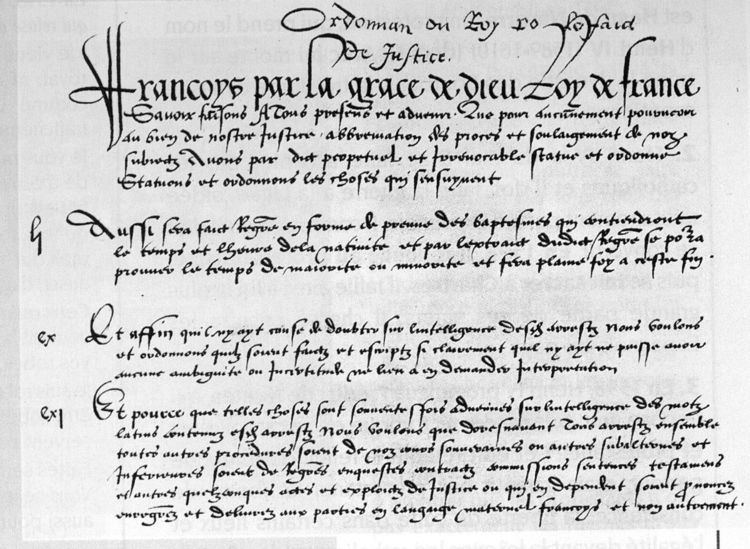 Ordonnan du Roy so le faict
de Justice.
Francoys par la grace de dieu Roy de france
Savoir faisons A Tous presens et advenir. Que pour aucunement pourveoir
au bien de nostre Justice. abbreviation des proces et soulaigement de noz
subiectz Avons par dict perpetuel et Irrevocable statue et ordonne
Statuons et ordonnons les choses qui sensuyvent
li Aussi sera faict Regre en forme de preuve des baptesmes qui contiendront
le temps et lheure dela nativite et par lextraict dudict Regre se porra
prouver le temps de maiorite ou minorite et fera plaine foy a ceste fin.
cx Et affin quil ny ayt cause de doubter sur lintelligence desdz arrestz Nous voulons
et ordonnons quilz soient faictz et escriptz si clairement quil ny ayt ne puisse avoir
aucune ambiguite ou Incertitude ne lieu a en demander Interpretation
cxj Et pource que telles choses sont souventesfois advenues sur lintelligence des motz
latins contenuz esdz arrestz Nous voulons que doresnavant Tous arrestz ensemble
toutes autres procedures soient de noz cours souveraines ou autres subalternes et
Inferieures soient de Regres enquestes contractz commissions sentences testamens
et autres quelzconques actes et exploictz de Justice ou qui en dependent soient pnoncez
enregrez et delivrez aux parties en langaige maternel francoys et non autrement.